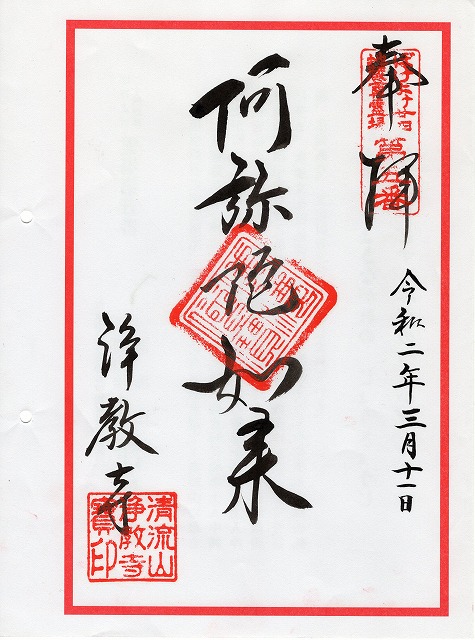 奉拝
令和二年三月十一日
阿弥陀如来
浄教寺
清流山
浄教寺
寳印